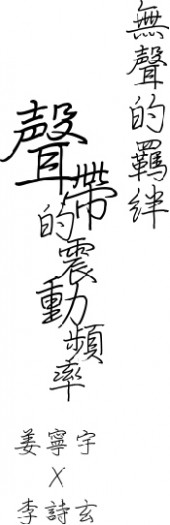 無聲的羈絆
聲帶的震動頻率
姜寧宇
X
李詩玄